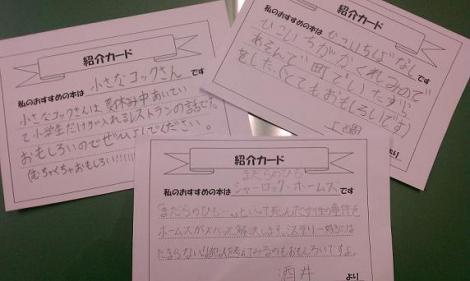 紹介カード
私のおすすめの本は 小さなコックさん です
小さなコックさんは、夏休み中あいてい
て小学生だけが入れるレストランの話です。
おもしろいのでぜひよんでください。
(むちゃくちゃおもしろい!!!!!
紹介カード
私のおすすめの本は ひこいちばなし
ひこいちがかくれみので
あそんで町でいたずら
をした、(とてもおもしろいです)
より
紹介カード
私のおすすめの本は まだらのひも
シャーロック・ホームズ です
「まだらのひも…」といって死んだ女性の事件を
ホームズがズバッと解決します。ミステリー好きには
たまらない
読んでみるのもおもしろいですよ。
酒井 より